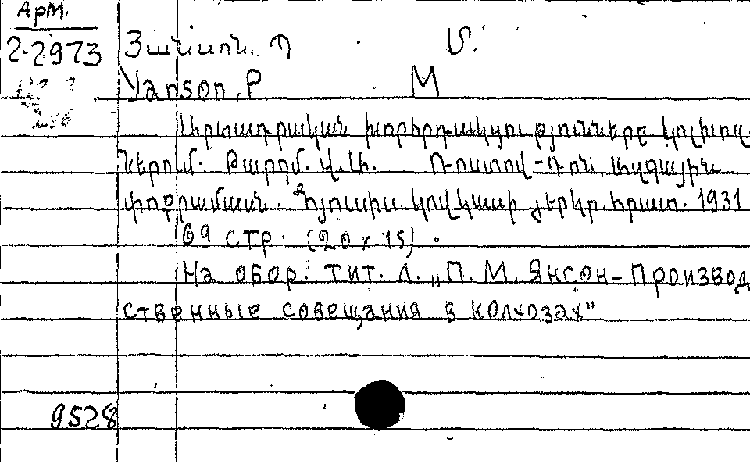 Арм.
2-2973
Յանսոն. Պ Մ.
Yanson, P M
Արտադրական խորհրդակցութիւնները կոլխոզ
ներում. Թարգմ. Ռոստով-Դոն Ազգային
փոքրամասն. Հյուսիս կովկասի յերկր. հրատ. 1931
69 стр. (20 x 15).
На обор. тит. л. „П. М. Янсон - Производ
ственные совещания в колхозах"
9528